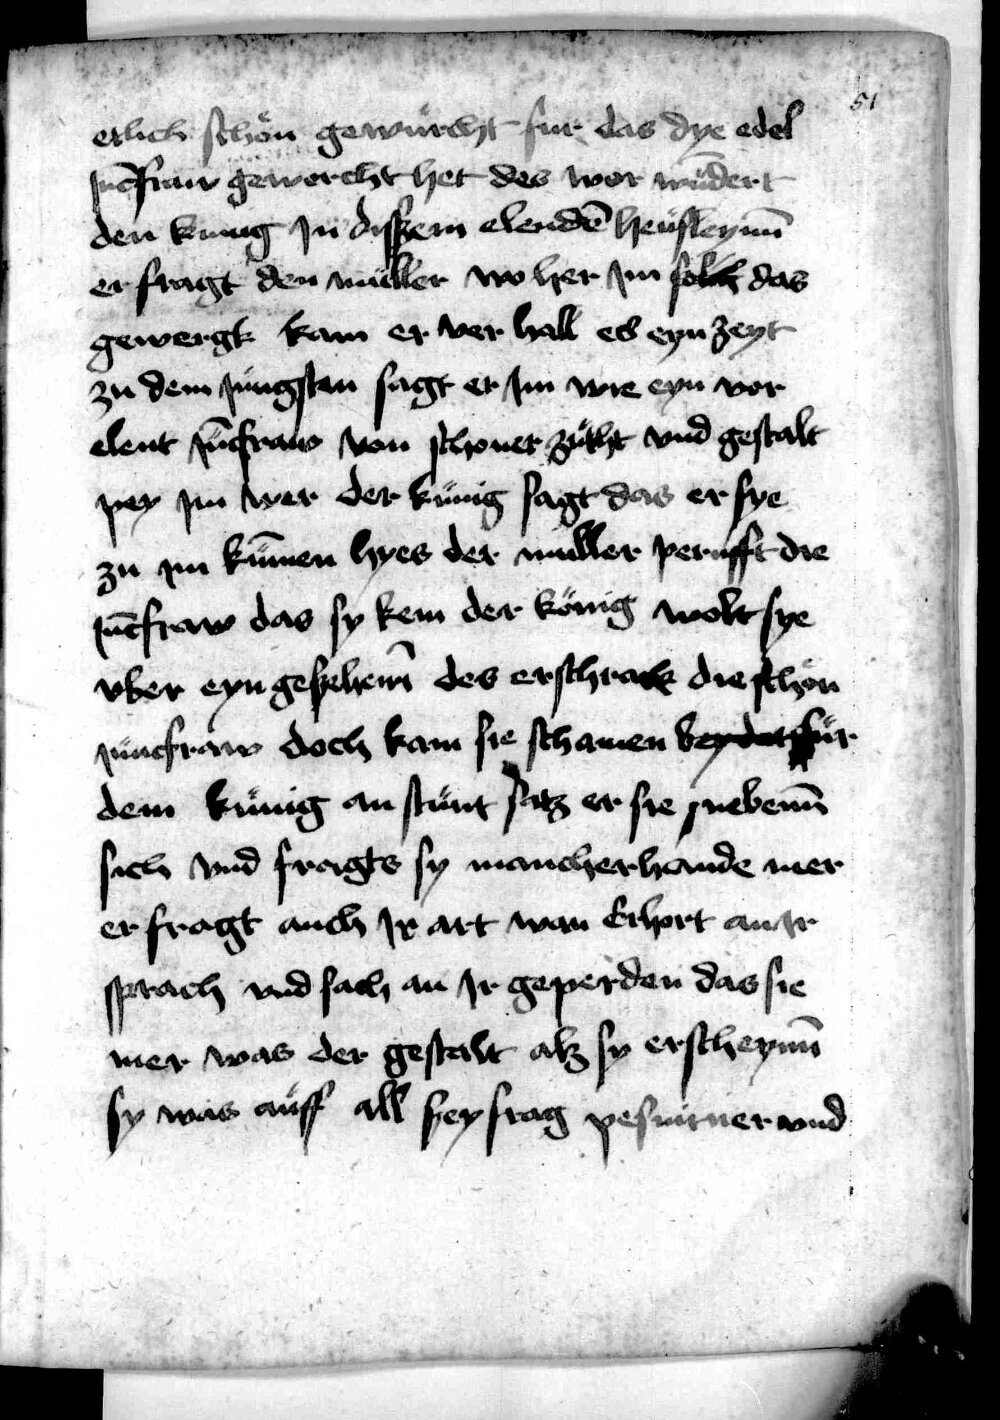 51
etlich schön gewürcht für das dye edel
Juc̄fraw gewercht het des wor wūdert
den kunig Jn dissem elendē heüsleynn̄
er fragt den müller wo her Jm solch das
gewergk kam er ver hall es eyn zeyt
zu dem Jüngsten sagt er Jm wie eyn vor
elent Jūcfraw von schoner zücht vnd gestalt
pey Jm wer der künig sagt das er sye
zu Jm kūmen hyes der müller perüfft die
Jūcfraw das sy kem der könig wolt sye
vber eyn geheim̄ des erschrack die schön
Jüncfraw doch kam sie schamen für
dem künig an stünt satz er sie nebenn̄
sich vnd fragts sy mancherhande mer
er fragt auch Jr art wan Erhort an Jr
sprach vnd sach an Jr geperden das sie
mer was der gestalt alz sy erscheynn̄
sy was aüff all sey frag vnd